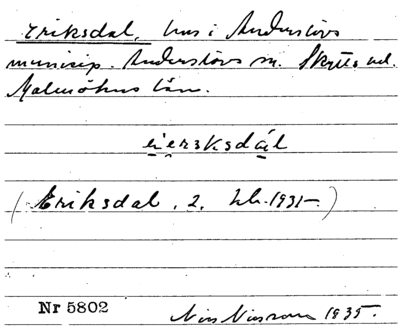 Eriksdal, hus i Anderslövs
municip. Anderslövs sn. Skytts hd.
Malmöhus län.
ei̯ersksdál
(Eriksdal. 2. hb. 1931–)
Nr 5802
Nils Nilsson 1935.